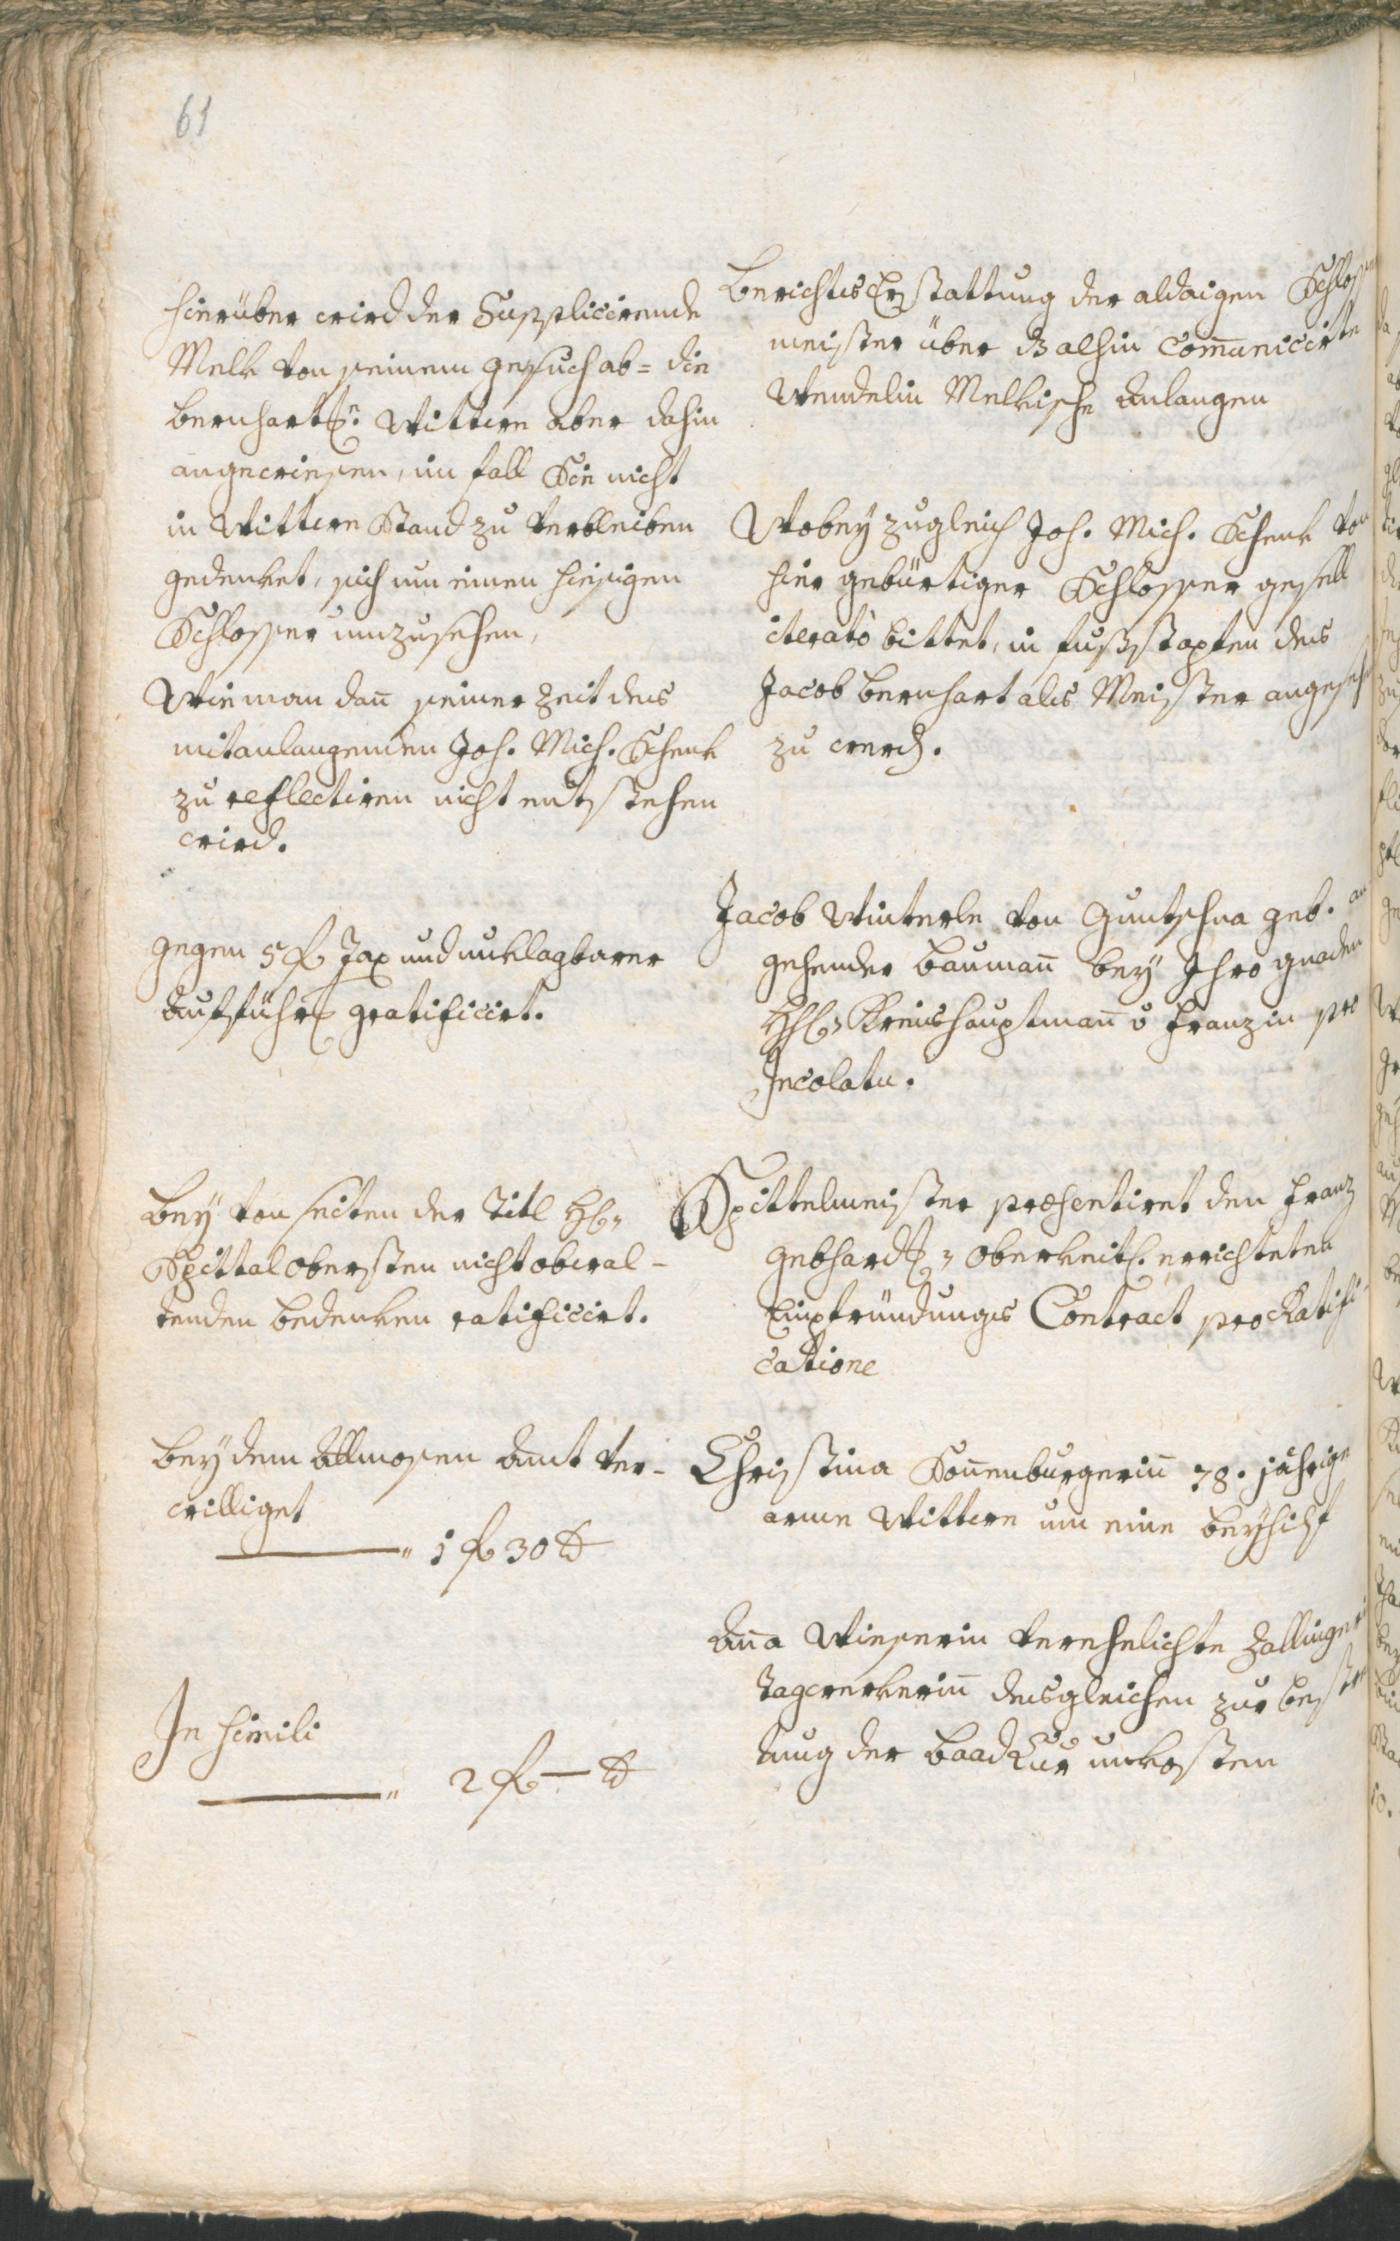 61
Berichts Erstattung der aldaigen Schlosser
meister über das alhin Com̄unicirte
Wendelin Melkische Anlangen
hierüber wird der Supplicirende
Melk von seinem Gesuch ab= die
Bernhartn Wittwe aber dahin
angewiesen, im fall Sie nicht
in Wittwe Stand zu verbleiben
gedenket, sich um einen hiesigen
Schlosser umzusehen,
Wie man dan̄ seiner Zeit des
mitanlangenden Joh. Mich. Schenk
zu reflectiren nicht entstehen
wird.
Wobey zugleich Joh. Mich. Schenk von
hier gebürtiger Schlosser gesell
iterato bittet, in fußstapfen des
Jacob Bernhart als Meister angesehen
zu werden.
Jacob Winterle von Guntschna geb. an
gehender Bauman̄ bey Ihro gnaden
Kreishauptman̄ v Franzin pro
Incolatu.
gegen 5 fl Tax und unklagbarer
Aufführ gratificirt.
Spittelmeister præsentiret den Franz
Gebhard oberkeitl. errichteten
Einpfründungs Contract pro Ratifi-
catione
Bey von seiten der Titl H
Spittal obersten nicht obwal-
tenden bedenken ratificirt.
Christina Son̄enburgerin̄ 78. jährige
arme Wittwe um eine beyhilf
Bey dem Allmosen Amt ver-
williget
" 1 fl 30 x
An̄a Wieserin verehelichte Zallingeri
Tagwerkerin̄ desgleichen zur bestrei
tung der Baad Cur unkosten
In simili
" 2 fl — x